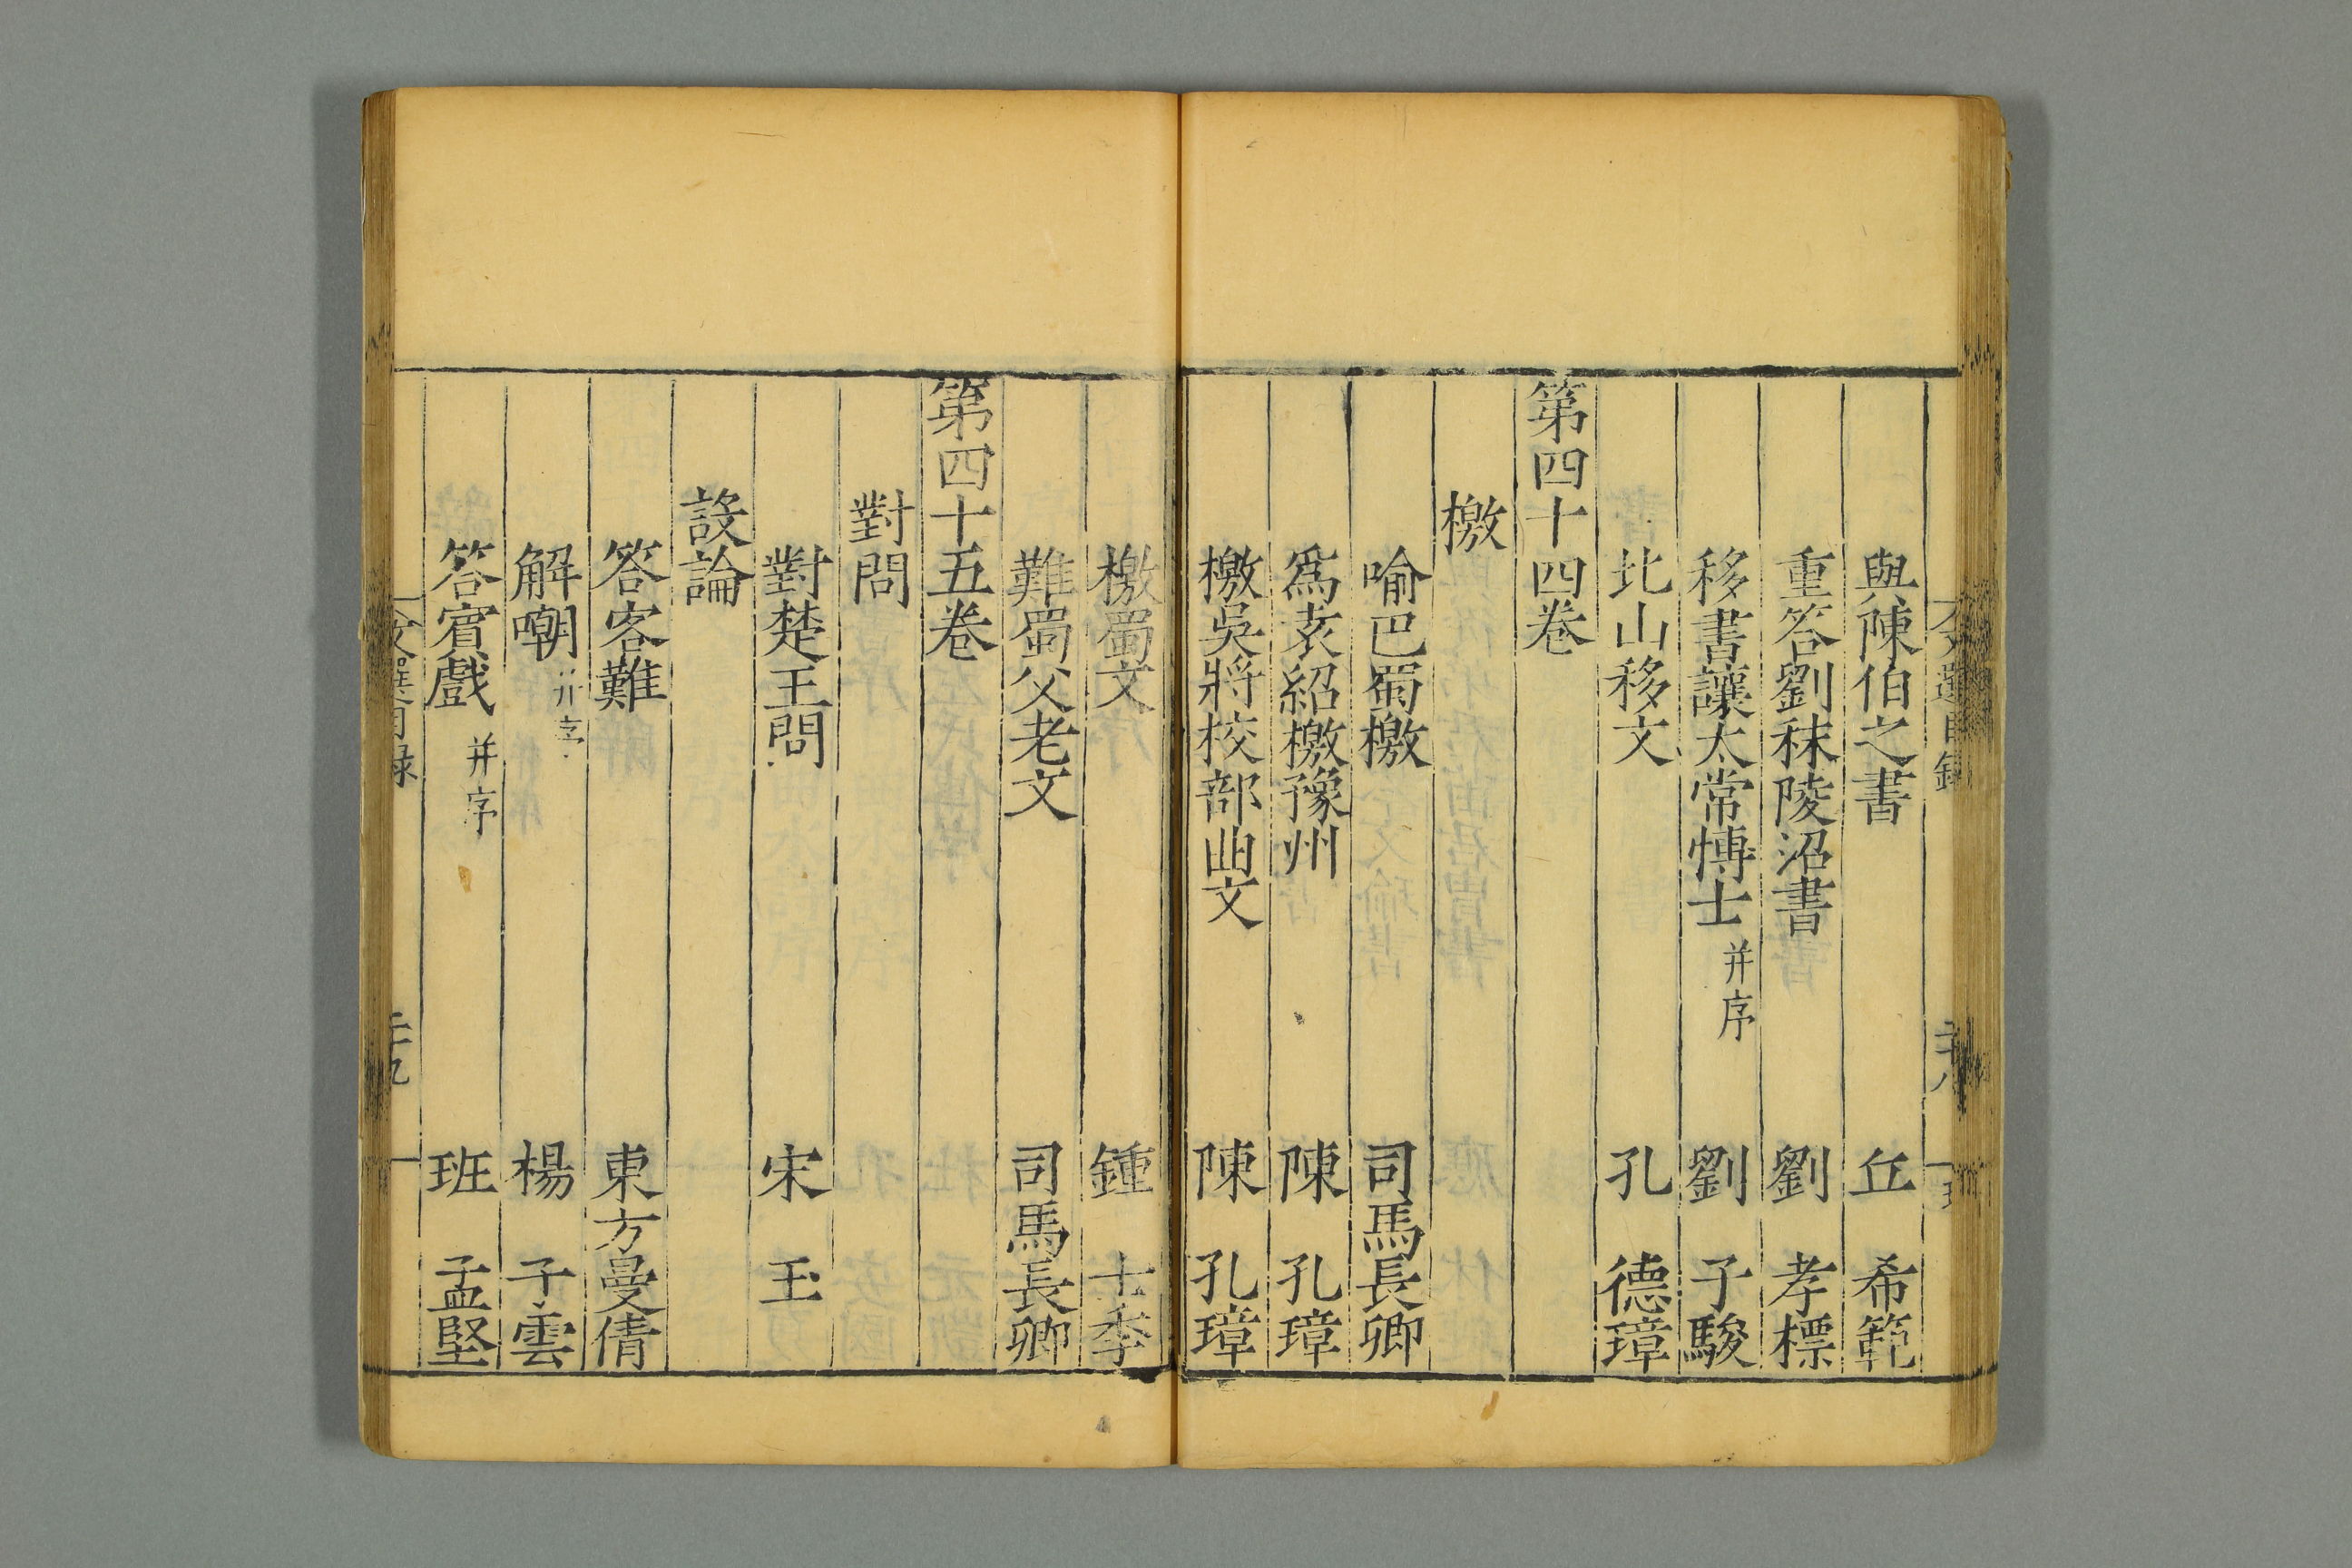 與陳伯之書 丘 希範
重答劉秣陵沼書 劉 孝標
移書讓太常愽士 并序 劉 子駿
北山移文 孔 德璋
第四十四卷
檄
喻巴蜀檄 司馬長卿
爲袁紹檄豫州 陳 孔璋
檄吳將校部曲文 陳 孔璋
檄蜀文 鍾 士季
難蜀父老文 司馬長卿
第四十五卷
對問
對楚王問 宋 玉
設論
答客難 東方曼倩
解嘲 并序 楊 子雲
答賓戲 并序 班 孟堅
文選目録 二十九